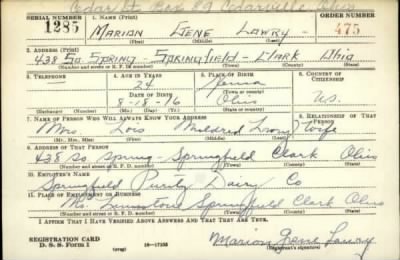 Cedar St. Box 89 Cedarville, Ohio
SERIAL NUMBER 1. NAME (Print) ORDER NUMBER
1285 MARION GENE LOWRY 475
(First) (Middle) (Last)
2. ADDRESS (Print)
438 SO SPRING SPRINGFIELD - CLARK OHIO
(Number and street or R. F. D. number) (Town) (County) (State)
3. TELEPHONE 4. AGE IN YEARS 5. PLACE OF BIRTH 6. COUNTRY OF CITIZENSHIP
24 Xenia
DATE OF BIRTH (Town or county)
8-18-16 Ohio U.S.
(Exchange) (Number) (Mo.) (Day) (Yr.) (State or country)
7. NAME OF PERSON WHO WILL ALWAYS KNOW YOUR ADDRESS 8. RELATIONSHIP OF THAT PERSON
Mrs. Lois Mildred Lowry Wife
(Mr., Mrs., Miss) (First) (Middle) (Last)
9. ADDRESS OF THAT PERSON
438 So Spring - Springfield Clark Ohio
(Number and street or R. F. D. number) (Town) (County) (State)
10. EMPLOYER'S NAME
Springfield Purity Dairy Co
11. PLACE OF EMPLOYMENT OR BUSINESS
Limestone Springfield Clark Ohio
(Number and street or R. F. D. number) (Town) (County) (State)
I AFFIRM THAT I HAVE VERIFIED ABOVE ANSWERS AND THAT THEY ARE TRUE.
REGISTRATION CARD
D. S. S. Form 1 (over) 16-17105 Marion Gene Lowry
(Registrant's signature)